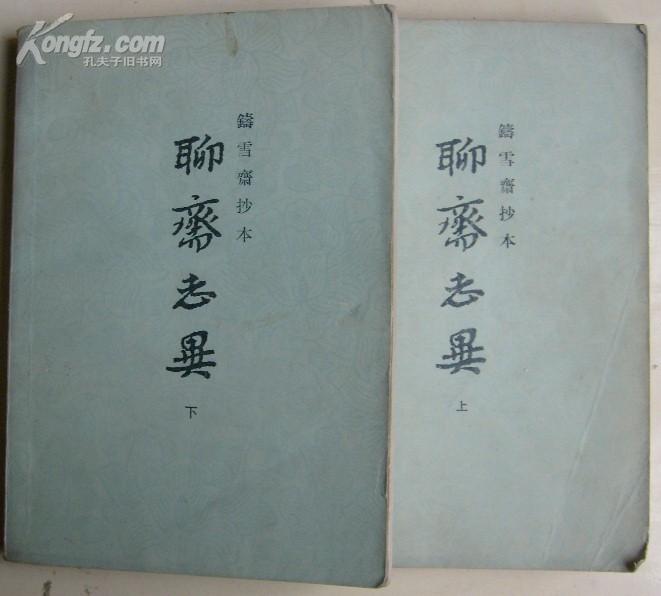 Kongfz.com
孔夫子旧书网
鑄雪齋抄本
聊齋志異
下
鑄雪齋抄本
聊齋志異
上